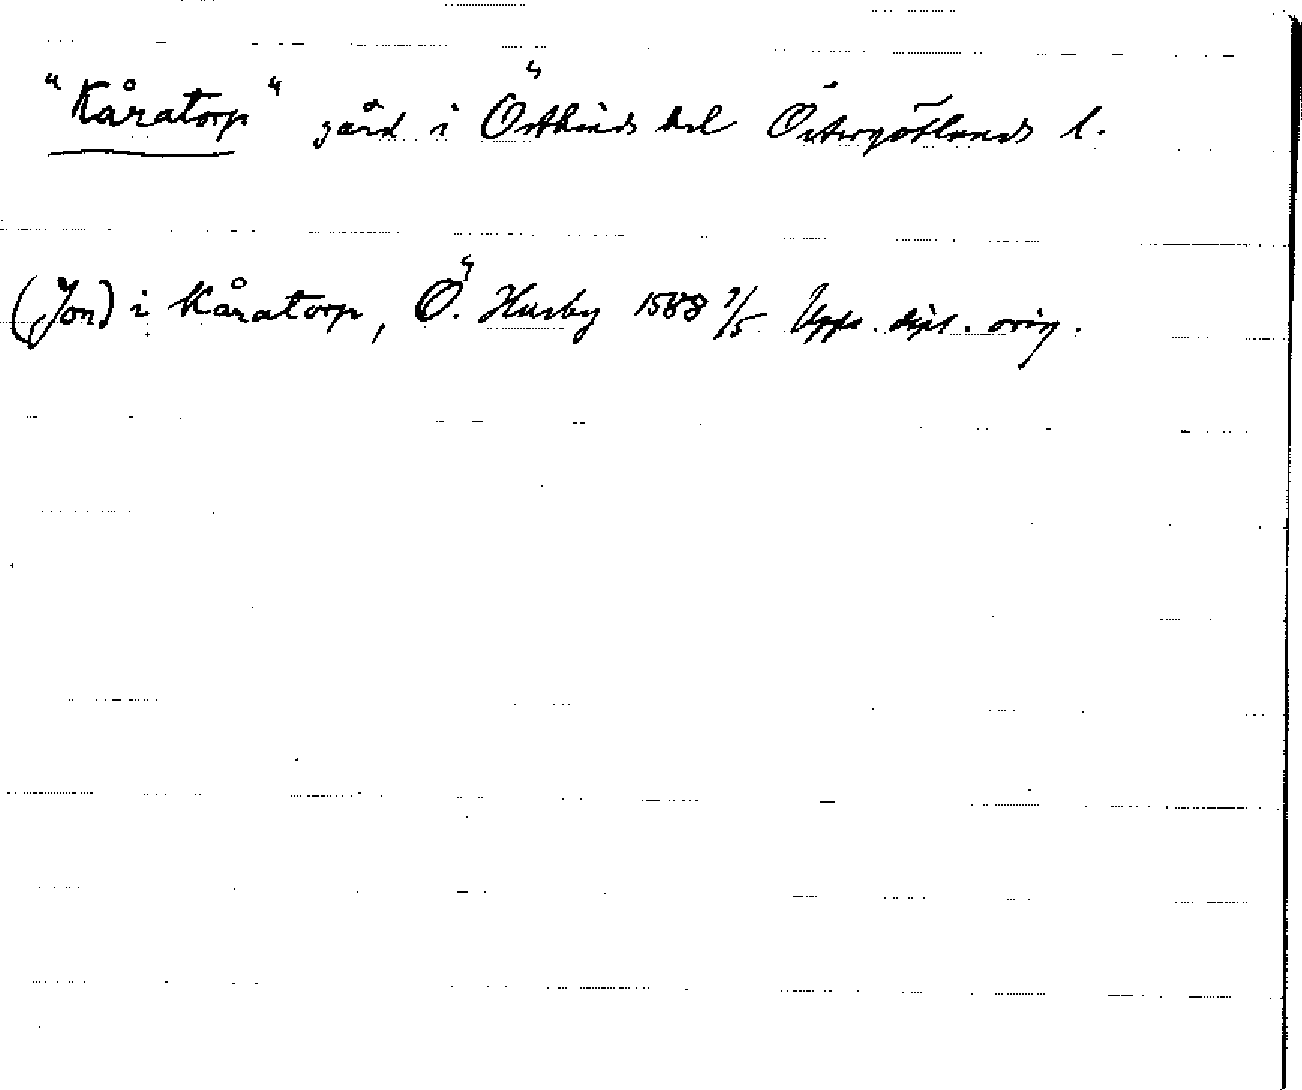 "Kåratorp" gård i Östkinds hd Östergötlands l.
(Jon) i Kåratorp, Ö. Husby 1588 7/5 Upps. dipl. orig.